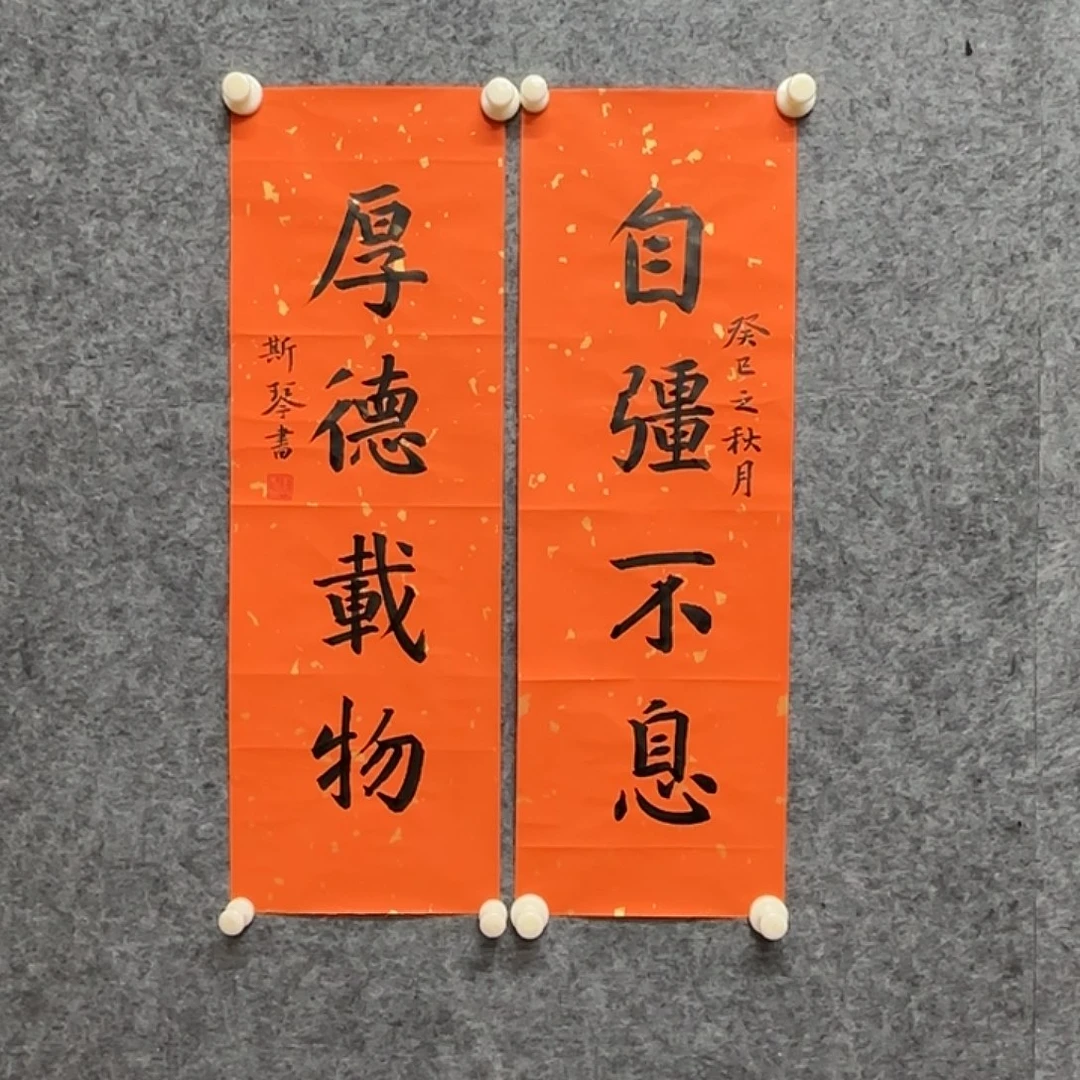 癸巳之秋月
自彊不息
厚德載物
斯琴書